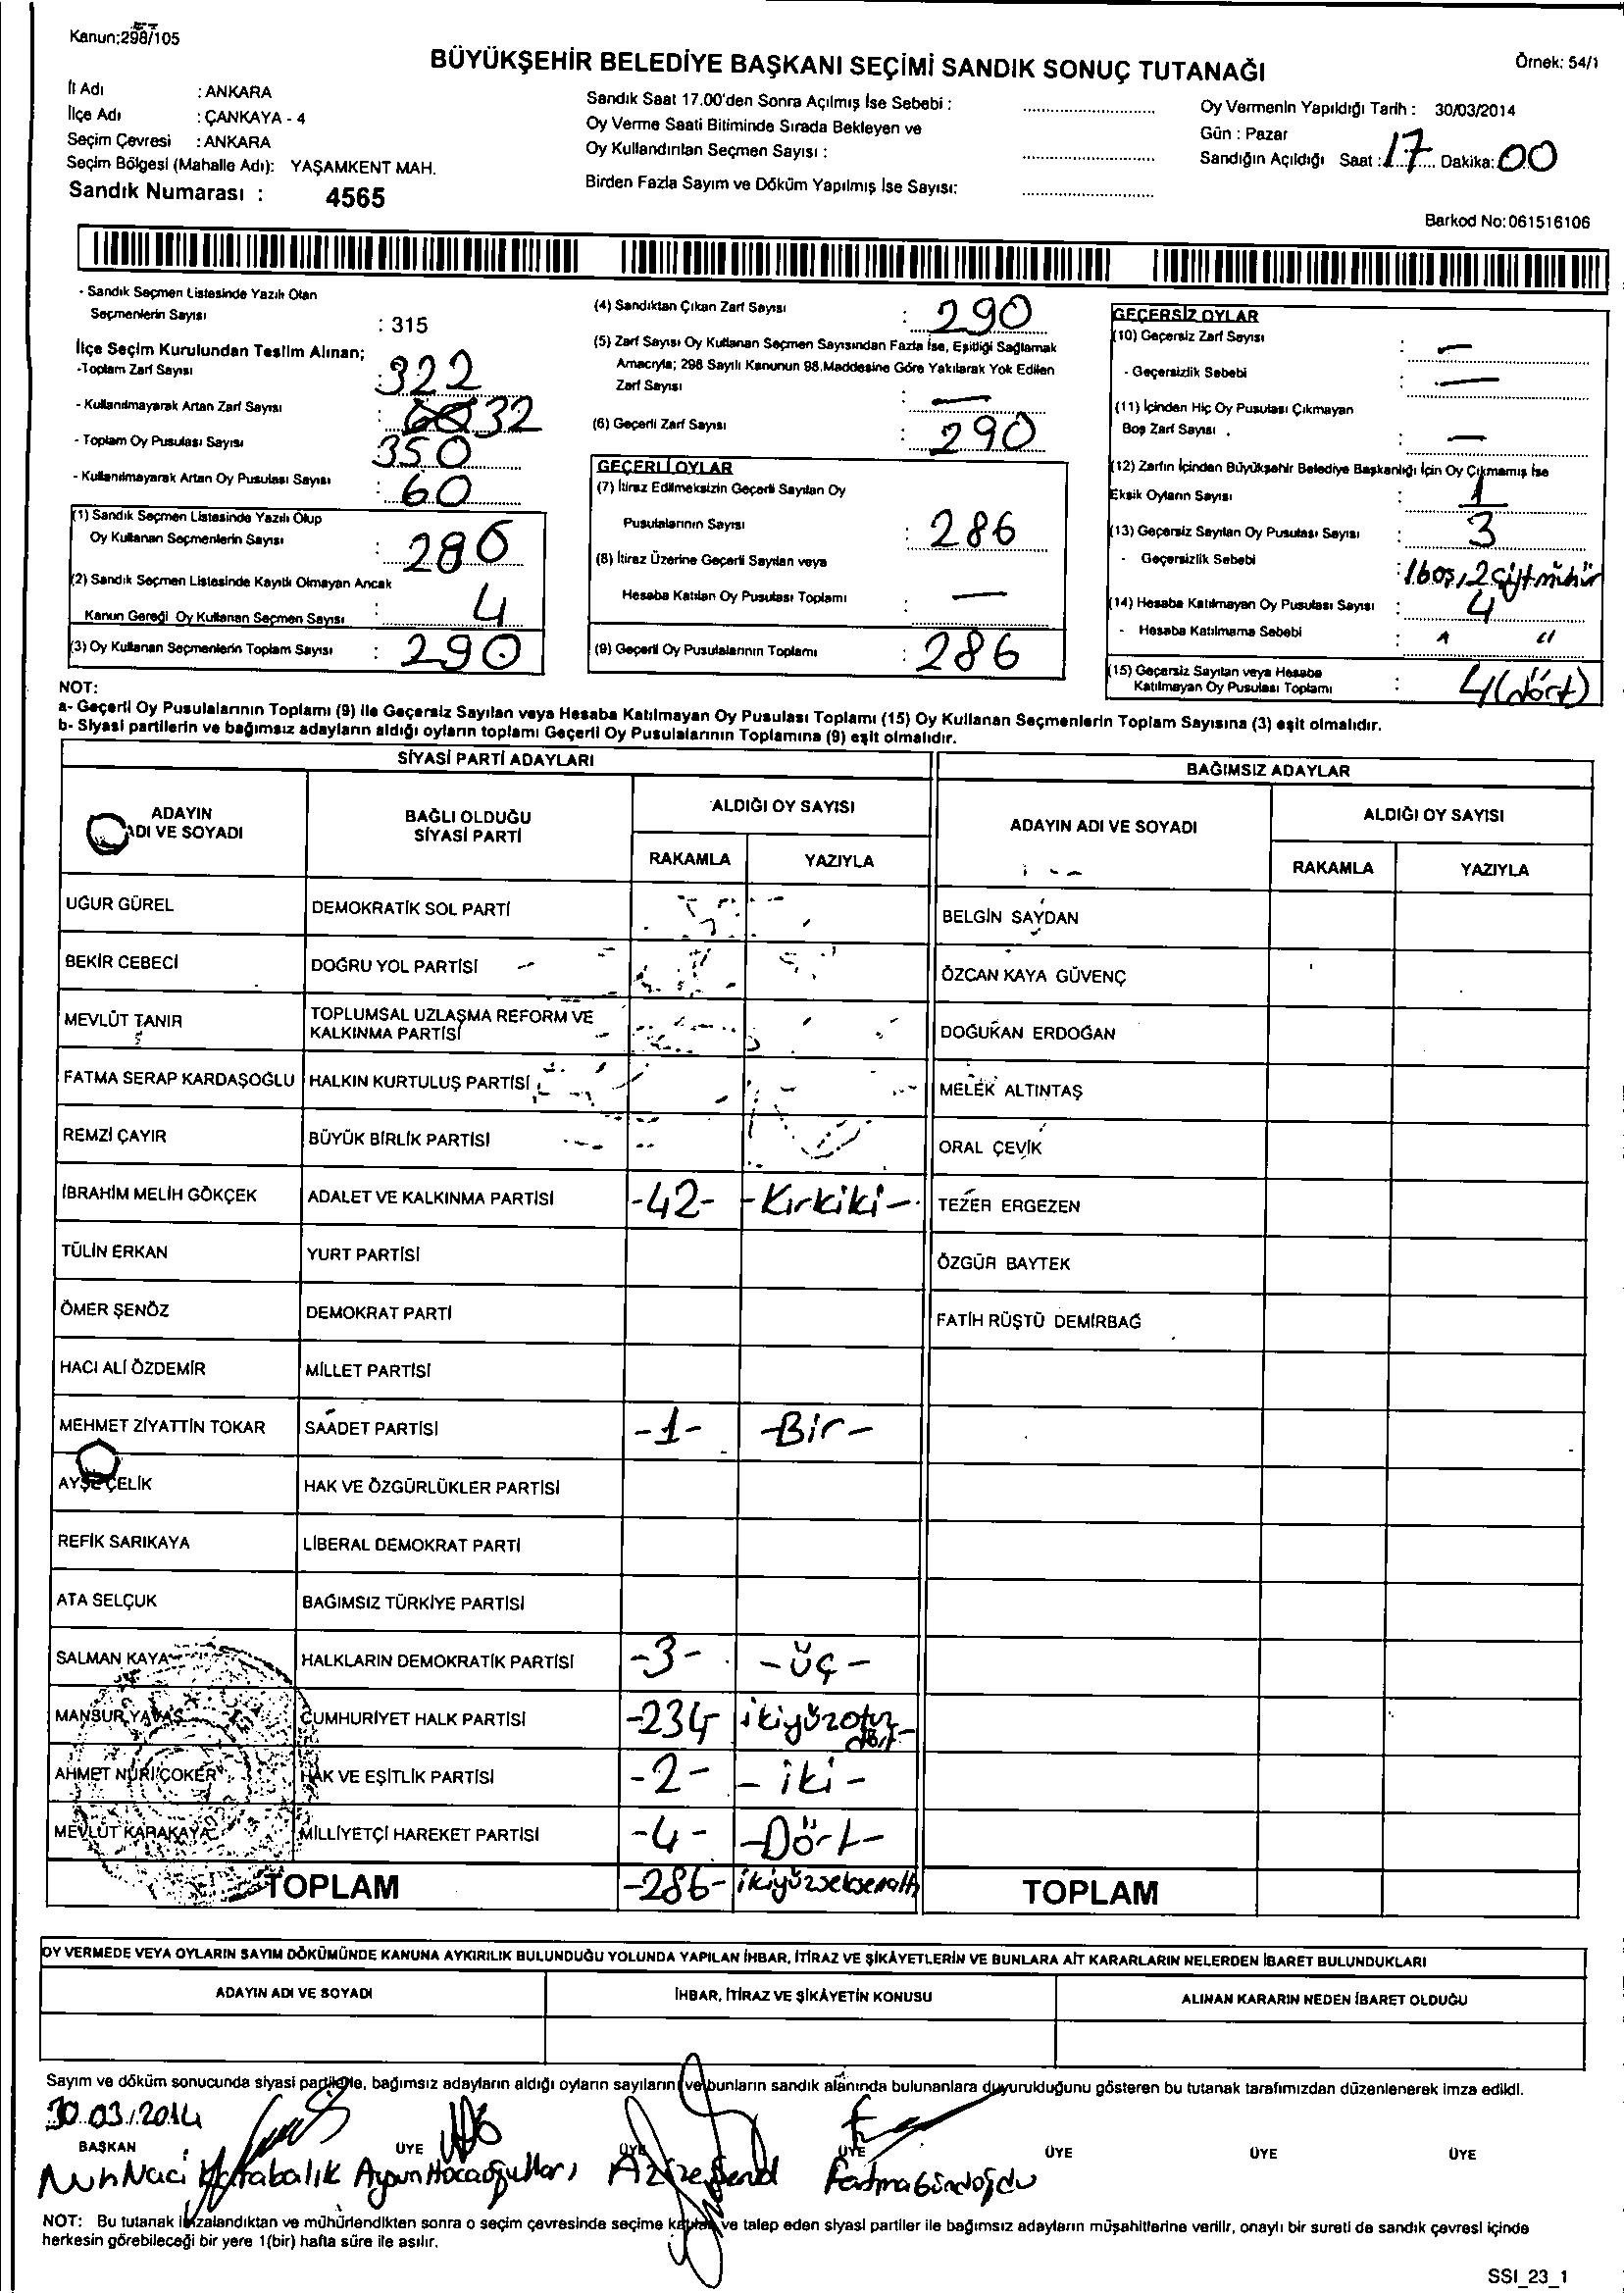 Kanun;298/105
BÜYÜKŞEHİR BELEDİYE BAŞKANI SEÇİMİ SANDIK SONUÇ TUTANAĞI
Örnek: 54/1
İl Adı : ANKARA
İlçe Adı : ÇANKAYA - 4
Seçim Çevresi : ANKARA
Seçim Bölgesi (Mahalle Adı): YAŞAMKENT MAH.
Sandık Numarası : 4565
Sandık Saat 17.00'den Sonra Açılmış İse Sebebi :
Oy Verme Saati Bitiminde Sırada Bekleyen ve
Oy Kullandırılan Seçmen Sayısı :
Birden Fazla Sayım ve Döküm Yapılmış İse Sayısı:
Oy Vermenin Yapıldığı Tarih : 30/03/2014
Gün : Pazar
Sandığın Açıldığı Saat : 17 Dakika: 00
Barkod No: 061516106
- Sandık Seçmen Listesinde Yazılı Olan
Seçmenlerin Sayısı : 315
İlçe Seçim Kurulundan Teslim Alınan;
-Toplam Zarf Sayısı : 322
- Kullanılmayarak Artan Zarf Sayısı : 32
- Toplam Oy Pusulası Sayısı 350
- Kullanılmayarak Artan Oy Pusulası Sayısı : 60
(1) Sandık Seçmen Listesinde Yazılı Olup
Oy Kullanan Seçmenlerin Sayısı : 286
(2) Sandık Seçmen Listesinde Kayıtlı Olmayan Ancak
Kanun Gereği Oy Kullanan Seçmen Sayısı : 4
(3) Oy Kullanan Seçmenlerin Toplam Sayısı : 290
(4) Sandıktan Çıkan Zarf Sayısı : 290
(5) Zarf Sayısı Oy Kullanan Seçmen Sayısından Fazla İse, Eşitliği Sağlamak
Amacıyla; 298 Sayılı Kanunun 98.Maddesine Göre Yakılarak Yok Edilen
Zarf Sayısı : —
(6) Geçerli Zarf Sayısı : 290
GEÇERLİ OYLAR
(7) İtiraz Edilmeksizin Geçerli Sayılan Oy
Pusulalarının Sayısı : 286
(8) İtiraz Üzerine Geçerli Sayılan veya
Hesaba Katılan Oy Pusulası Toplamı : —
(9) Geçerli Oy Pusulalarının Toplamı : 286
GEÇERSİZ OYLAR
(10) Geçersiz Zarf Sayısı : —
- Geçersizlik Sebebi : —
(11) İçinden Hiç Oy Pusulası Çıkmayan
Boş Zarf Sayısı : —
(12) Zarfın İçinden Büyükşehir Belediye Başkanlığı İçin Oy Çıkmamış İse
Eksik Oyların Sayısı : 1
(13) Geçersiz Sayılan Oy Pusulası Sayısı : 3
- Geçersizlik Sebebi : 1 boş, 2 çift mühür
(14) Hesaba Katılmayan Oy Pusulası Sayısı : 4
- Hesaba Katılmama Sebebi : " "
(15) Geçersiz Sayılan veya Hesaba
Katılmayan Oy Pusulası Toplamı : 4 (dört)
NOT:
a- Geçerli Oy Pusulalarının Toplamı (9) ile Geçersiz Sayılan veya Hesaba Katılmayan Oy Pusulası Toplamı (15) Oy Kullanan Seçmenlerin Toplam Sayısına (3) eşit olmalıdır.
b- Siyasi partilerin ve bağımsız adayların aldığı oyların toplamı Geçerli Oy Pusulalarının Toplamına (9) eşit olmalıdır.
SİYASİ PARTİ ADAYLARI BAĞIMSIZ ADAYLAR
ADAYIN ADI VE SOYADI BAĞLI OLDUĞU SİYASİ PARTİ ALDIĞI OY SAYISI ADAYIN ADI VE SOYADI ALDIĞI OY SAYISI
RAKAMLA YAZIYLA RAKAMLA YAZIYLA
UĞUR GÜREL DEMOKRATİK SOL PARTİ BELGİN SAYDAN
BEKİR CEBECİ DOĞRU YOL PARTİSİ ÖZCAN KAYA GÜVENÇ
MEVLÜT TANIR TOPLUMSAL UZLAŞMA REFORM VE KALKINMA PARTİSİ DOĞUKAN ERDOĞAN
FATMA SERAP KARDAŞOĞLU HALKIN KURTULUŞ PARTİSİ MELEK ALTINTAŞ
REMZİ ÇAYIR BÜYÜK BİRLİK PARTİSİ ORAL ÇEVİK
İBRAHİM MELİH GÖKÇEK ADALET VE KALKINMA PARTİSİ -42- -Kırkiki- TEZER ERGEZEN
TÜLİN ERKAN YURT PARTİSİ ÖZGÜR BAYTEK
ÖMER ŞENÖZ DEMOKRAT PARTİ FATİH RÜŞTÜ DEMİRBAĞ
HACI ALİ ÖZDEMİR MİLLET PARTİSİ
MEHMET ZİYATTİN TOKAR SAADET PARTİSİ -1- -Bir-
AYŞE ÇELİK HAK VE ÖZGÜRLÜKLER PARTİSİ
REFİK SARIKAYA LİBERAL DEMOKRAT PARTİ
ATA SELÇUK BAĞIMSIZ TÜRKİYE PARTİSİ
SALMAN KAYA HALKLARIN DEMOKRATİK PARTİSİ -3- -üç-
MANSUR YAVAŞ CUMHURİYET HALK PARTİSİ -234- ikiyüzotuzdört-
AHMET NURİ ÇOKER HAK VE EŞİTLİK PARTİSİ -2- -iki-
MEVLÜT KARAKAYA MİLLİYETÇİ HAREKET PARTİSİ -4- -Dört-
TOPLAM -286- ikiyüzseksenaltı TOPLAM
OY VERMEDE VEYA OYLARIN SAYIM DÖKÜMÜNDE KANUNA AYKIRILIK BULUNDUĞU YOLUNDA YAPILAN İHBAR, İTİRAZ VE ŞİKÂYETLERİN VE BUNLARA AİT KARARLARIN NELERDEN İBARET BULUNDUKLARI
ADAYIN ADI VE SOYADI İHBAR, İTİRAZ VE ŞİKÂYETİN KONUSU ALINAN KARARIN NEDEN İBARET OLDUĞU
Sayım ve döküm sonucunda siyasi partilerle, bağımsız adayların aldığı oyların sayılarını ve bunların sandık alanında bulunanlara duyurulduğunu gösteren bu tutanak tarafımızdan düzenlenerek imza edildi.
30.03.2014
BAŞKAN ÜYE ÜYE ÜYE ÜYE ÜYE ÜYE
Nuh Naci Karabalık Aygun Hocaoğulları Azize Şend Fatma Gündoğdu
NOT: Bu tutanak imzalandıktan ve mühürlendikten sonra o seçim çevresinde seçime katılan ve talep eden siyasi partiler ile bağımsız adayların müşahitlerine verilir, onaylı bir sureti de sandık çevresi içinde
herkesin görebileceği bir yere 1(bir) hafta süre ile asılır.
SSI_23_1